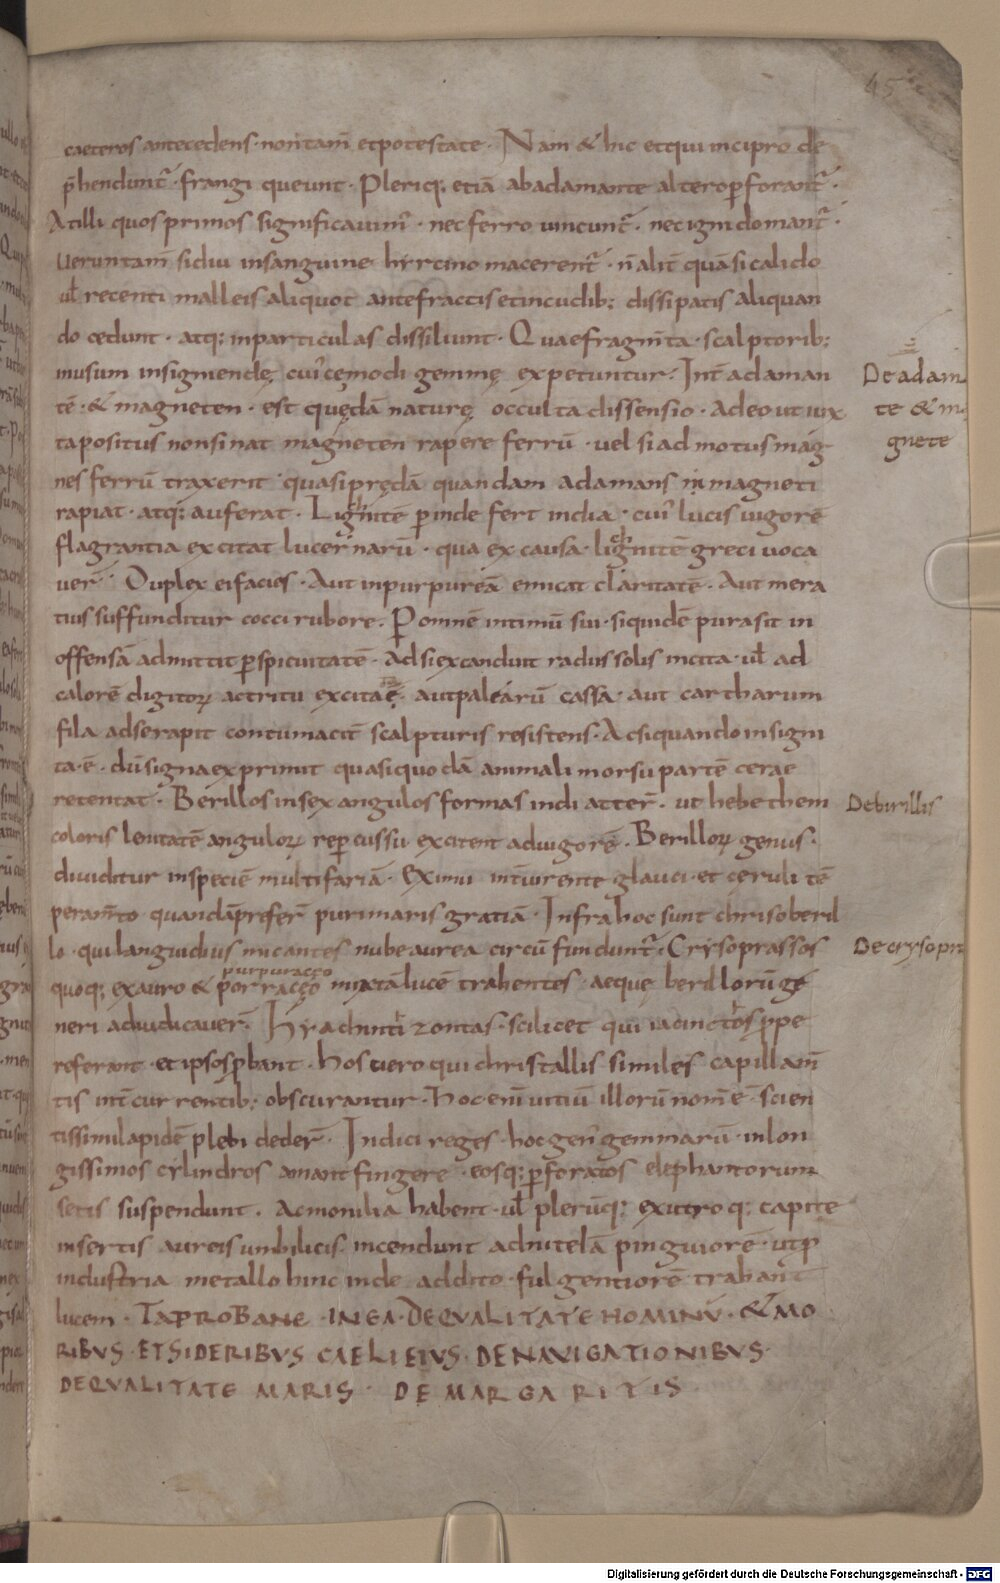 45
caeteros antecedens · non tam̄ et potestate · Nam & hic et qui incipro de
p̄hendunt᷑ · frangi queunt · Pleriq; etiā ab adamante altero ꝑforant᷑ ·
At illi quos primos significauim᷒ · nec ferro uincunt᷑ · nec igni domant᷑ ·
Ueruntam̄ si diu in sanguine hyrcino macerent᷑ · n̄ alit᷑ quā si calido
ul̄ recenti malleis aliquot ante fractis et incudib; dissipatis aliquan
do cedunt · atq; in particulas dissiliunt · Quae fragm̄ta · scalptorib;
usum insigniendę cui᷒cęmodi gemmę expetuntur · Int̄ adaman
De adam
tē · & magneten · est quędā naturę occulta dissensio · Adeo ut iux
te & ma
ta positus non sinat magneten rapere ferrū · uel si ad motus mag
gnete
nes ferrū traxerit · quasi p̨rędā quandam adamans in magneti
rapiat · atq; auferat · Lignitē ꝑinde fert india · cui᷒ lucis uigorē
flagrantia excitat lucernarū · qua ex causa · lignitē greci uoca
uer̄ · Duplex ei facies · Aut in purpureā emicat claritatē · Aut mera
tius suffunditur cocci rubore · P omnē intimū sui · siquidē pura sit in
offensā admittit ꝑspicuitatē · Ad si excanduit radiis solis incita · ul̄ ad
calorē digitoꝝ attritu excitaę · aut paleárū cassa · aut cartharum
fila adse rapit contumacit᷑ scalpturis resistens · Ac si quando insigni
ta · ē · dū signa exprimit quasi quodā animali morsu partē cerae
retentat · Berillos in sex angulos formas indi atter̄ · ut hebethem
De birillis
coloris lenitatē anguloꝝ reꝑcussu excitent ad uigorē · Berilloꝝ genus ·
diuiditur in speciē multifariā · Eximii int̄uirente glauci · et cęruli tē
peram̄to quandā prefer̄ puri maris gratiā · Infra hoc sunt chrisoberil
li · qui languidius micantes nube aurea circū fundunt᷑ · Crysoprassos
De crysopr
purpuraceo
quoq; ex auro & porraceo mixtā lucē trahentes · aequę berillorū ge
neri adiudicauer̄ · Hyachinti zontas · scilicet qui iacinctos ꝓpe
referant · et ipsos ꝓbant · Hos uero qui christallis similes capillam̄
tis int̄currentib; obscurantur · Hoc enī uitiū illorū nom̄ ē · scien
tissimi lapidē plebi deder̄ · Indici reges · hoc gen᷒ gemmarū · in lon
gissimos cylindros amant fingere · eosq; ꝑforatos elephantorum
setis suspendunt · Ac monilia habent · ul̄ plerūq; ex utroq; capite
insertis aureis umbilicis · incendunt ad nitelā pinguiorē · ut ꝑ
industria metallo hinc inde addito · fulgentiorē trahant
lucem · TAPROBANE · IN EA · DE QVALITATE HOMINV̄ · & MO
RIBVS · ET SIDERIBVS CAELI EIVS · DE NAVIGATIONIBVS ·
DE QVALITATE MARIS · DE MARGARITIS
Digitalisierung gefördert durch die Deutsche Forschungsgemeinschaft - DFG